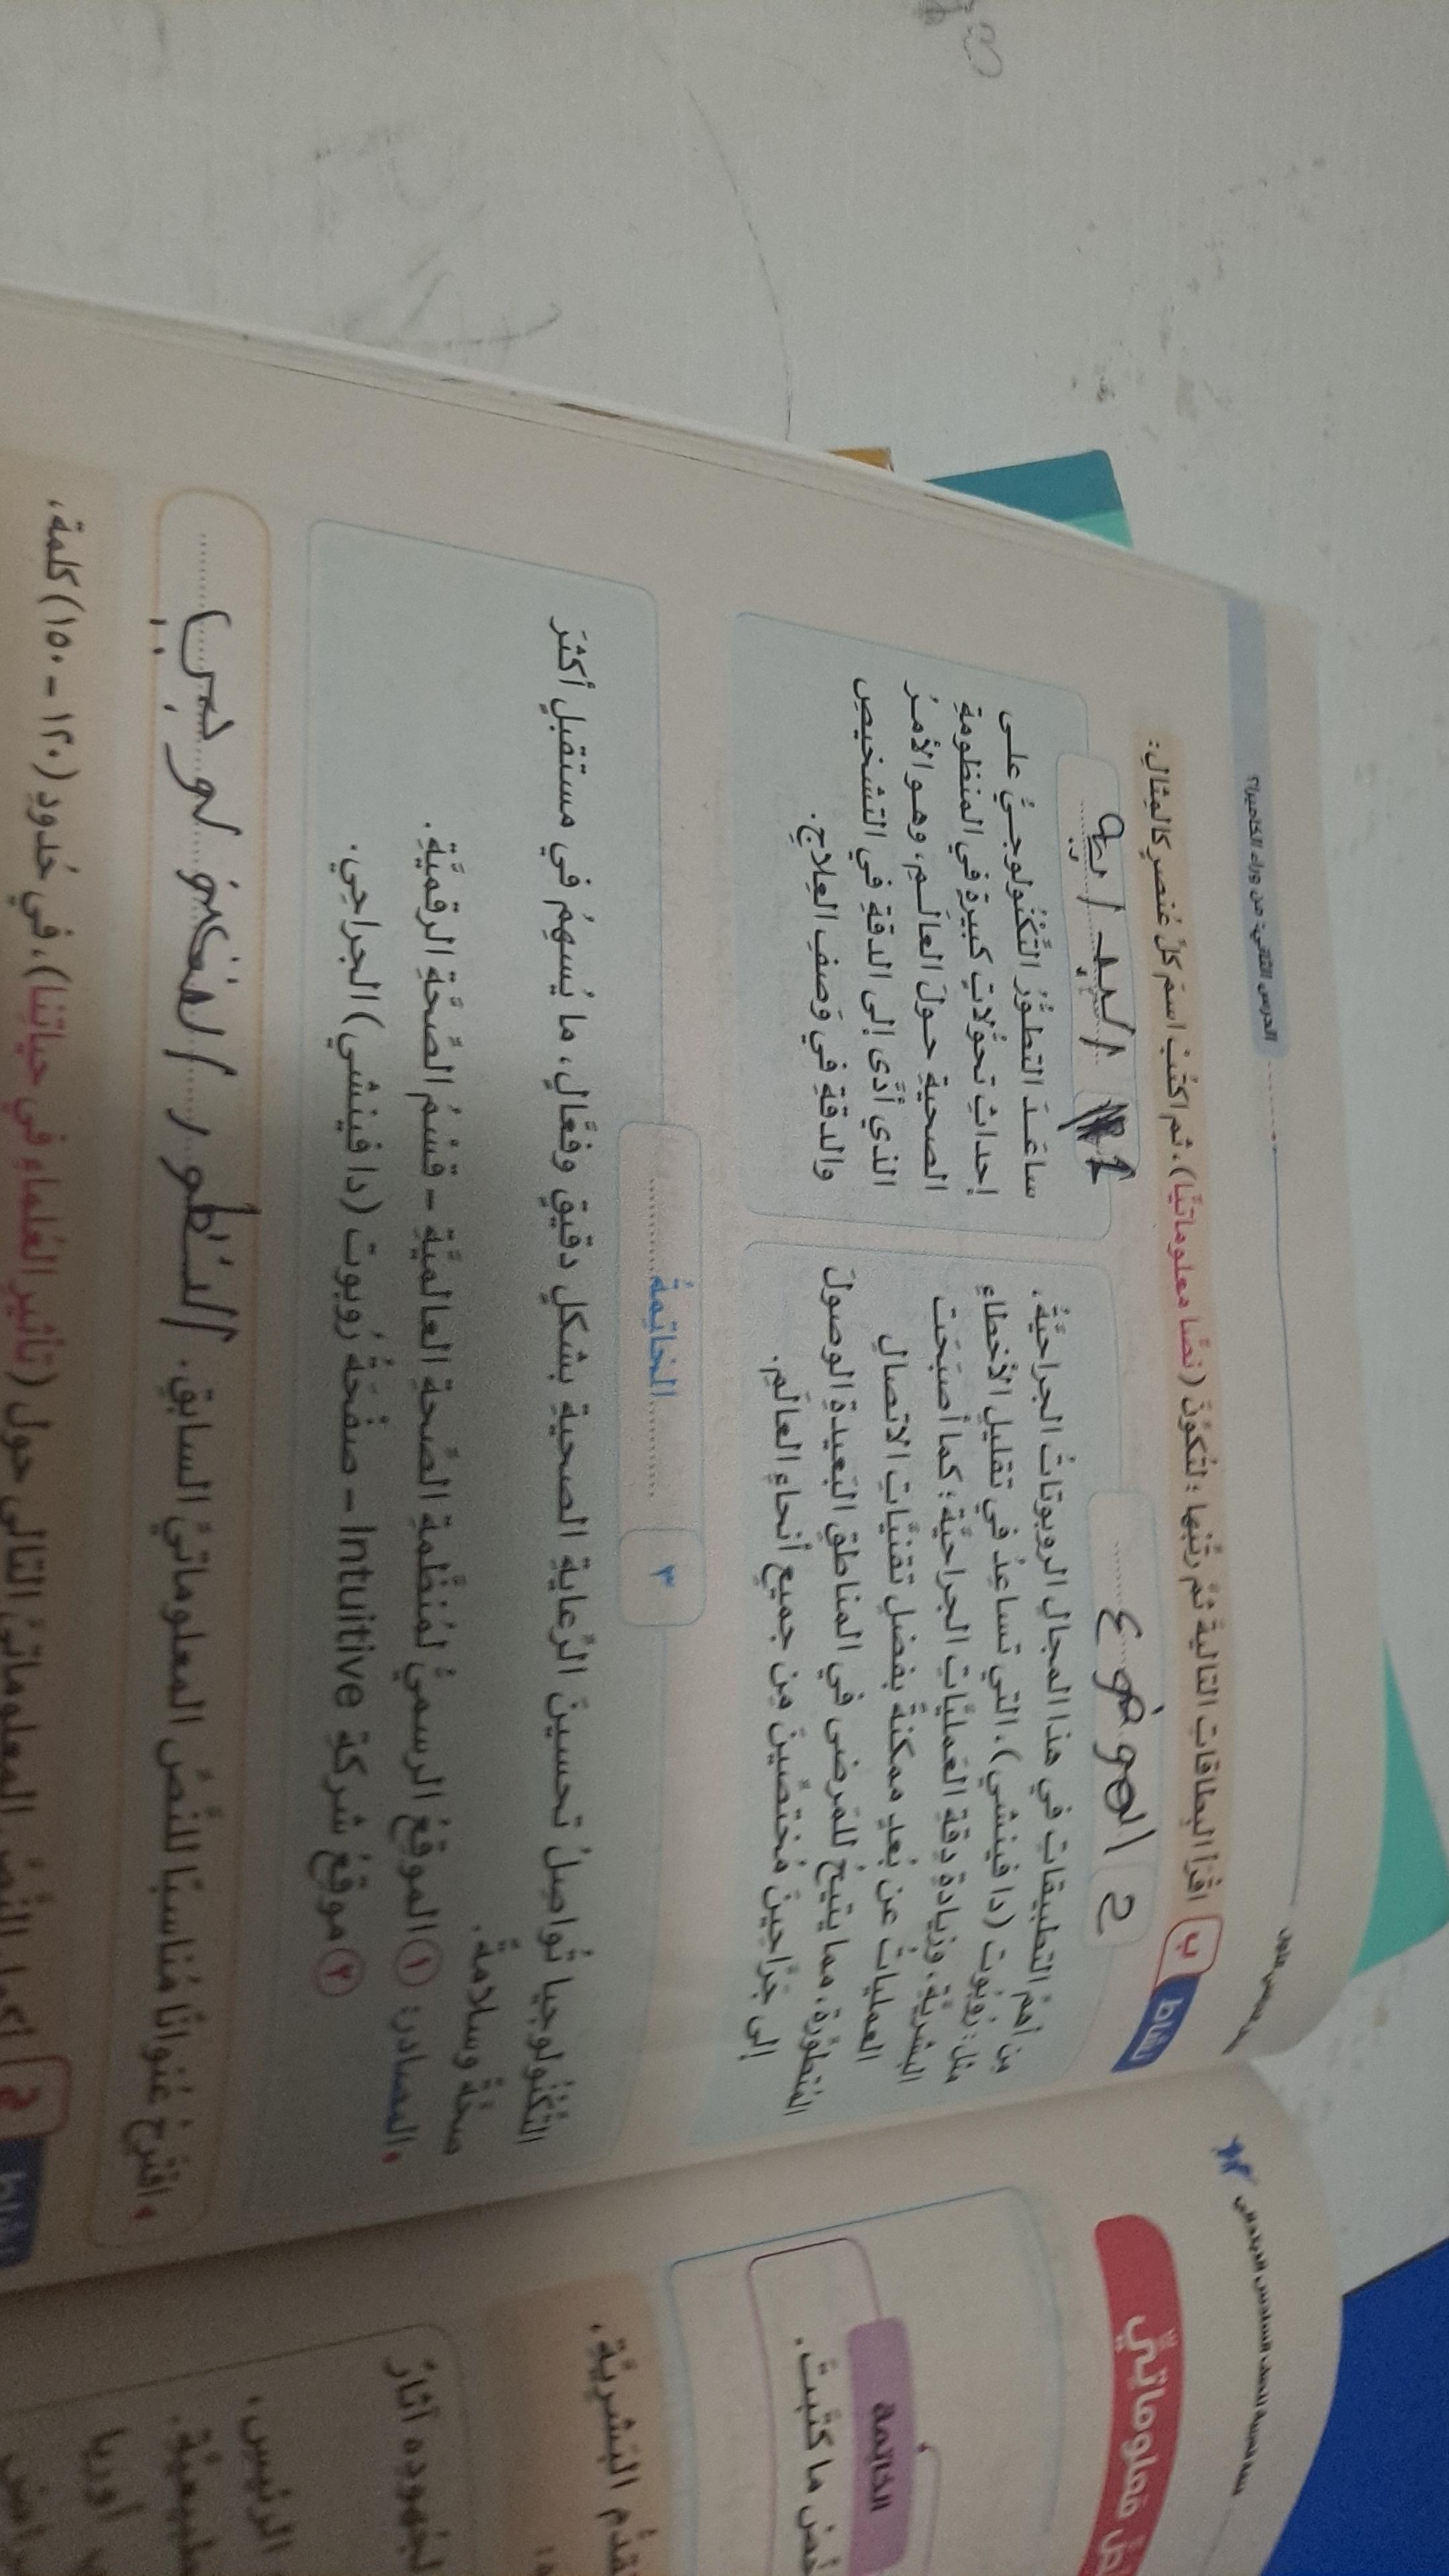 الدرس الثاني: من وراء الكاميرا؟
نشاط ب اقرأ البطاقات التالية ثم رتّبها؛ لتكوّن (نصًّا معلوماتيًّا)، ثم اكتب اسم كلّ عُنصرٍ كالمِثالِ:
٢ الموضوع
من أهمِّ التطبيقاتِ في هذا المجالِ الروبوتاتُ الجراحيَّةُ،
مثل: رُوبُوت (دا فينشي)، التي تساعِدُ في تقليلِ الأخطاءِ
البشريَّةِ، وزيادةِ دِقةِ العَمليَّاتِ الجراحيَّةِ؛ كما أصبَحَت
العملياتُ عن بُعدٍ ممكنةً بفضلِ تقنيَّاتِ الاتصالِ
المُتطوّرةِ، مما يتيحُ للمَرضى في المناطقِ البَعيدةِ الوصولَ
إلى جَرَّاحِينَ مُختصِّينَ مِن جميعِ أنحاءِ العالَمِ.
١ البداية
ساعَدَ التطوُّرُ التِّكْنُولوجيُّ على
إحداثِ تحوُّلاتٍ كبيرةٍ في المنظومةِ
الصحيةِ حولَ العالَمِ، وهو الأمرُ
الذي أدَّى إلى الدقةِ في التشخيصِ
والدقةِ في وَصفِ العِلاجِ.
٣ الخاتِمةُ
التِّكْنُولوجيا تُواصِلُ تحسينَ الرِّعايةِ الصحيةِ بشكلٍ دقيقٍ وفعَّالٍ، ما يُسهِمُ في مستقبلٍ أكثرَ
صحَّةً وسلامةً.
المصادر: ١ الموقعُ الرسميُّ لمُنظَّمةِ الصِّحةِ العالميَّةِ - قسْمُ الصِّحَّةِ الرقميَّةِ.
٢ موقعُ شركةِ Intuitive - صفْحَةُ رُوبوت (دا فينشي) الجراحِي.
اقترح عُنوانًا مُناسبًا للنَّصِّ المعلوماتيِّ السابقِ. التطور
نشاط ج أكمل النَّصَّ المعلوماتيَّ التالي حول (تأثير العُلماءِ في حياتِنا)، في حُدودِ (١٢٠ - ١٥٠) كلمة،
الخاتمة
ما كتَبتَ.
البَشريَّةِ،
آثارٌ
الرئيسِ،
أوربا